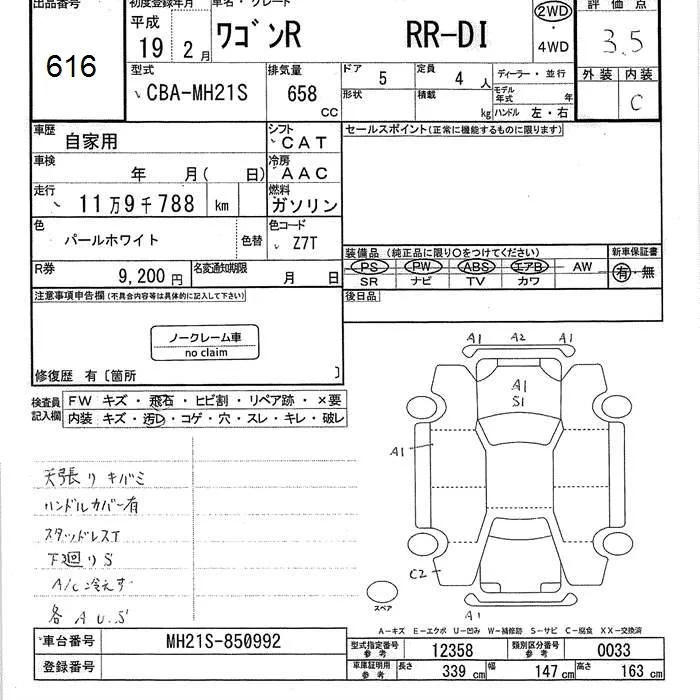 出品番号 初度登録年月 車名・グレード 評価点
616 平成 19 2月 ワゴンR RR-DI 2WD・4WD 3.5
型式 CBA-MH21S 排気量 658 CC ドア 5 形状 定員 4人 積載 kg ディーラー・並行 モデル年式 年 ハンドル 左・右 外装 内装 C
車歴 自家用 シフト CAT セールスポイント(正常に機能するものに限ります)
車検 年 月( 日) 冷房 AAC
走行 11万9千788 km 燃料 ガソリン
色 パールホワイト 色替 色コード Z7T
装備品 (純正品に限り○をつけてください) 新車保証書
R券 9,200円 名変通知期限 月 日 PS PW ABS エアB AW 有・無
SR ナビ TV カワ
注意事項申告欄(不具合内容等は具体的に記入して下さい) 後日品
ノークレーム車
no claim
修復歴 有〔箇所 〕
検査員記入欄 FW キズ・飛石・ヒビ割・リペア跡・×要
内装 キズ・汚レ・コゲ・穴・スレ・キレ・破レ
天張り キバミ
ハンドルカバー有
スタッドレスT
下廻りS
A/C冷えず
各 A U.S
A1 A2 A1
A1
S1
A1
C2
A1
スペア
A-キズ E-エクボ U-凹み W-補修跡 S-サビ C-腐食 XX-交換済
車台番号 MH21S-850992 型式指定番号 参考 12358 類別区分番号 参考 0033
登録番号 車庫証明用 参考 長さ 339 cm 幅 147 cm 高さ 163 cm